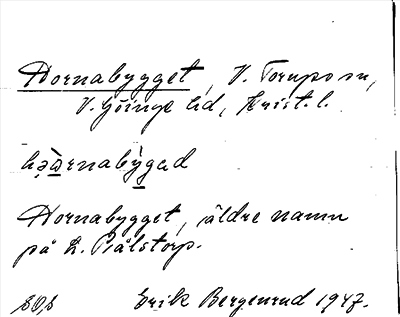 Hornabygget, V. Torups sn,
V. Göinge hd, Krist. l.
hȯarnabygəd
Hornabygget, äldre namn
på L. Pålstorp.
Erik Bergenrud 1947.